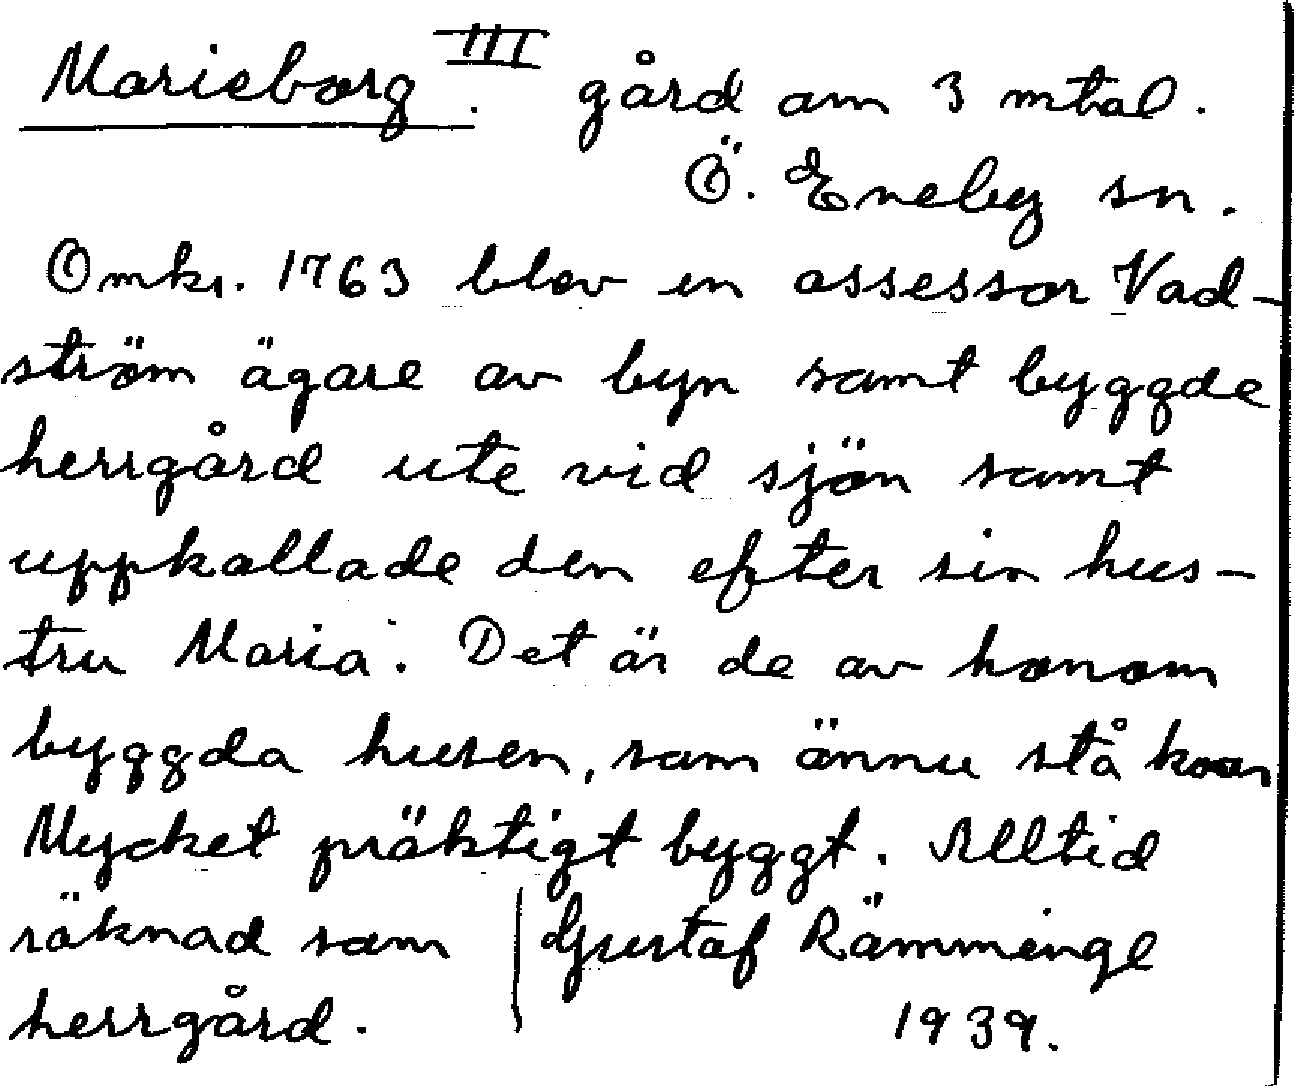 Marieborg III. gård om 3 mtal.
Ö. Eneby sn.
Omkr. 1763 blev en assessor Vad-
ström ägare av byn samt byggde
herrgård ute vid sjön samt
uppkallade den efter sin hus-
tru Maria. Det är de av honom
byggda husen, som ännu stå kvar
Mycket präktigt byggt. Alltid
räknad som
herrgård.
Gustaf Rämminge
1939.